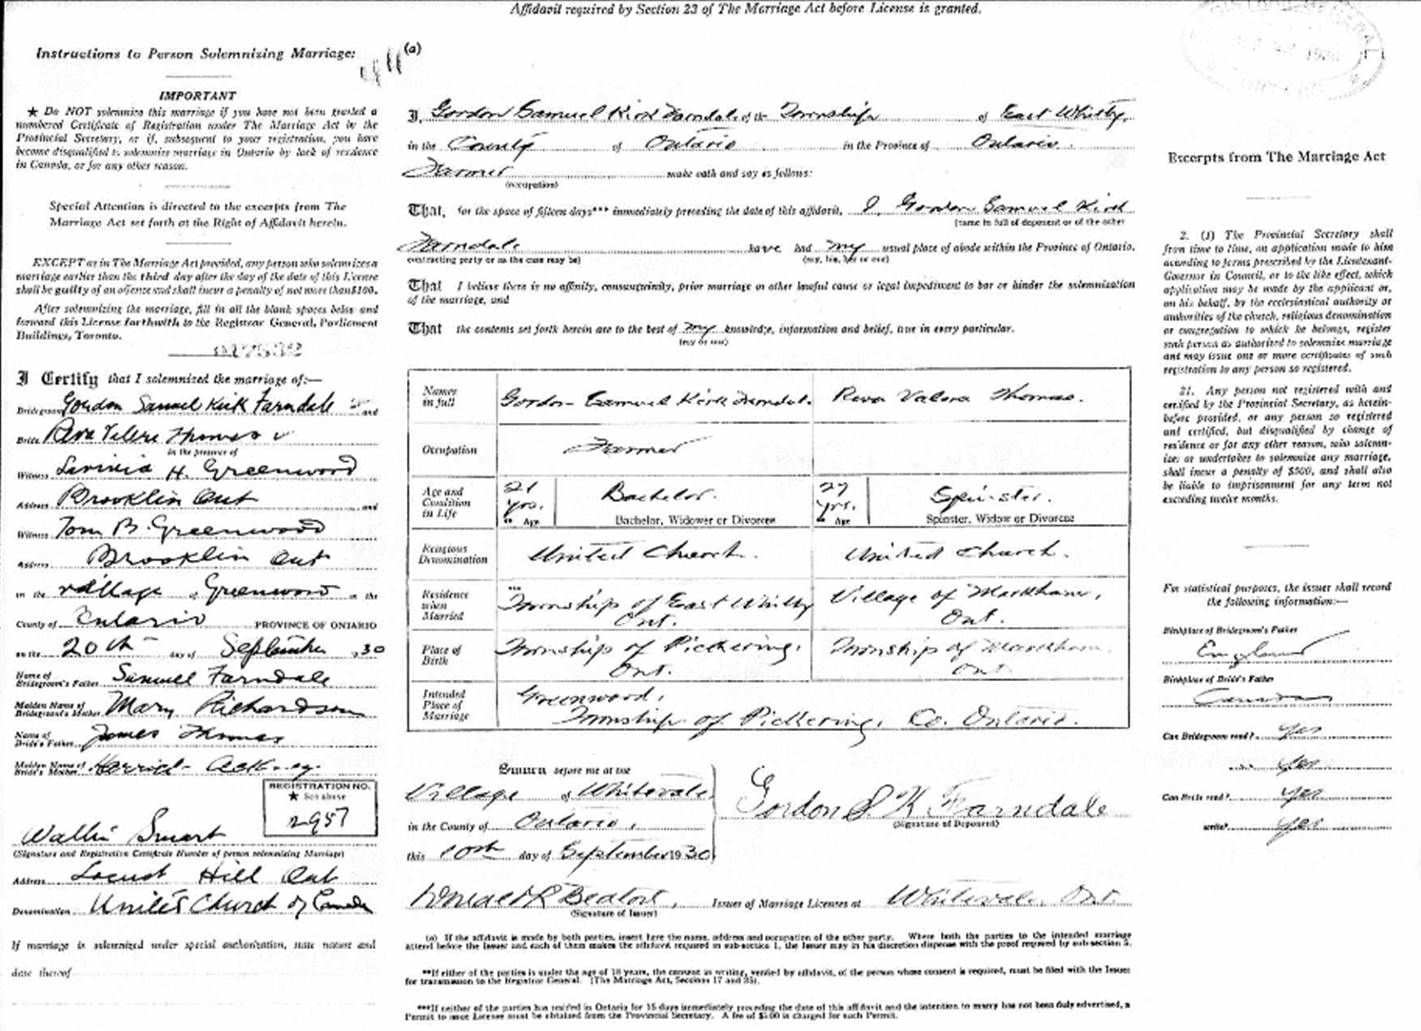 Affidavit required by Section 23 of The Marriage Act before License is granted.
Instructions to Person Solemnizing Marriage:
IMPORTANT
★ Do NOT solemnize this marriage if you have not been granted a
numbered Certificate of Registration under The Marriage Act by the
Provincial Secretary, or if, subsequent to your registration, you have
become disqualified to solemnize marriage in Ontario by lack of residence
in Canada, or for any other reason.
Special Attention is directed to the excerpts from The
Marriage Act set forth at the Right of Affidavit herein.
EXCEPT as in The Marriage Act provided, any person who solemnizes a
marriage earlier than the third day after the day of the date of this License
shall be guilty of an offence and shall incur a penalty of not more than $100.
After solemnizing the marriage, fill in all the blank spaces below and
forward this License forthwith to the Registrar General, Parliament
Buildings, Toronto.
I Certify that I solemnized the marriage of:—
Bridegroom Gordon Samuel Kirk Farndale and
Bride Reva Velere Thomas
in the presence of
Witness Lavinia H. Greenwood
Address Brooklin Ont and
Witness Tom B. Greenwood
Address Brooklin Ont
in the village of Greenwood in the
County of Ontario PROVINCE OF ONTARIO
on the 20th day of September 1930
Name of Bridegroom's Father Samuel Farndale
Maiden Name of Bridegroom's Mother Mary Richardson
Name of Bride's Father James Thomas
Maiden Name of Bride's Mother Harriet
REGISTRATION NO.
★ See above
2957
Smart
(Signature and Registration Certificate Number of person solemnizing Marriage)
Address Locust Hill Ont
Denomination United Church of Canada
If marriage is solemnized under special authorization, state nature and
date thereof
(a)
I, Gordon Samuel Kirk Farndale of the Township of East Whitby,
in the County of Ontario in the Province of Ontario.
Farmer make oath and say as follows:
(occupation)
That, for the space of fifteen days*** immediately preceding the date of this affidavit, I, Gordon Samuel Kirk
(name in full of deponent or of the other
Farndale have had my usual place of abode within the Province of Ontario.
contracting party or as the case may be) (my, his, her or our)
That I believe there is no affinity, consanguinity, prior marriage or other lawful cause or legal impediment to bar or hinder the solemnization
of the marriage, and
That the contents set forth herein are to the best of my knowledge, information and belief, true in every particular.
(my or our)
Names in full Gordon Samuel Kirk Farndale Reva Valera Thomas.
Occupation Farmer
Age and Condition in Life 21 yrs. Bachelor. 27 yrs. Spinster.
** Age Bachelor, Widower or Divorcee ** Age Spinster, Widow or Divorcee
Religious Denomination United Church. United Church.
Residence when Married *** Township of East Whitby Ont. Village of Markham, Ont.
Place of Birth Township of Pickering, Ont. Township of Markham. Ont.
Intended Place of Marriage Greenwood, Township of Pickering, Co. Ontario.
Sworn before me at the
Village of Whitevale
in the County of Ontario,
this 10th day of September 1930
Gordon S. K. Farndale
(Signature of Deponent)
Donald R Beaton, Issuer of Marriage Licenses at Whitevale, Ont.
(Signature of Issuer)
(a) If the affidavit is made by both parties, insert here the name, address and occupation of the other party. Where both the parties to the intended marriage
attend before the Issuer and each of them makes the affidavit required in sub-section 1, the Issuer may in his discretion dispense with the proof required by sub-section 5.
**If either of the parties is under the age of 18 years, the consent in writing, verified by affidavit, of the person whose consent is required, must be filed with the Issuer
for transmission to the Registrar General. (The Marriage Act, Sections 17 and 25).
***If neither of the parties has resided in Ontario for 15 days immediately preceding the date of this affidavit and the intention to marry has not been duly advertised, a
Permit to issue License must be obtained from the Provincial Secretary. A fee of $5.00 is charged for such Permit.
Excerpts from The Marriage Act
2. (1) The Provincial Secretary shall
from time to time, on application made to him
according to terms prescribed by the Lieutenant-
Governor in Council, or to the like effect, which
application may be made by the applicant or,
on his behalf, by the ecclesiastical authority or
authorities of the church, religious denomination
or congregation to which he belongs, register
such person as authorized to solemnize marriage
and may issue one or more certificates of such
registration to any person so registered.
21. Any person not registered with and
certified by the Provincial Secretary, as herein-
before provided, or any person so registered
and certified, but disqualified by change of
residence or for any other reason, who solemn-
izes or undertakes to solemnize any marriage,
shall incur a penalty of $500, and shall also
be liable to imprisonment for any term not
exceeding twelve months.
For statistical purposes, the issuer shall record
the following information:—
Birthplace of Bridegroom's Father
England
Birthplace of Bride's Father
Canada
Can Bridegroom read? Yes
Yes
Can Bride read? Yes
write? Yes